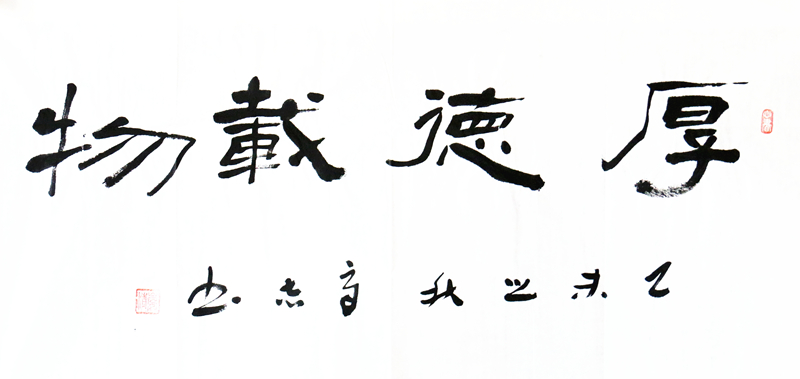 厚德載物
乙未之秋高志书